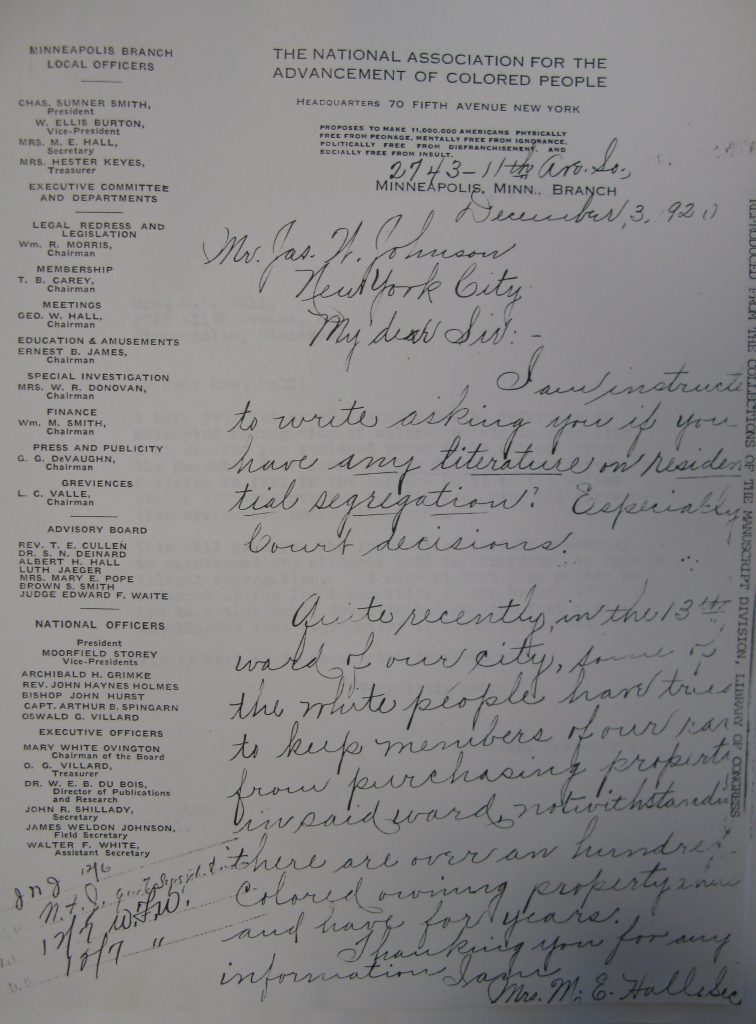 MINNEAPOLIS BRANCH
LOCAL OFFICERS
CHAS. SUMNER SMITH,
President
W. ELLIS BURTON,
Vice-President
MRS. M. E. HALL,
Secretary
MRS. HESTER KEYES,
Treasurer
EXECUTIVE COMMITTEE
AND DEPARTMENTS
LEGAL REDRESS AND
LEGISLATION
WM. R. MORRIS,
Chairman
MEMBERSHIP
T. B. CAREY,
Chairman
MEETINGS
GEO. W. HALL,
Chairman
EDUCATION & AMUSEMENTS
ERNEST B. JAMES,
Chairman
SPECIAL INVESTIGATION
MRS. W. R. DONOVAN,
Chairman
FINANCE
WM. M. SMITH,
Chairman
PRESS AND PUBLICITY
G. G. DeVAUGHN,
Chairman
GREVIENCES
L. C. VALLE,
Chairman
ADVISORY BOARD
REV. T. E. CULLEN
DR. S. N. DEINARD
ALBERT H. HALL
LUTH JAEGER
MRS. MARY E. POPE
BROWN S. SMITH
JUDGE EDWARD F. WAITE
NATIONAL OFFICERS
President
MOORFIELD STOREY
Vice-Presidents
ARCHIBALD H. GRIMKE
REV. JOHN HAYNES HOLMES
BISHOP JOHN HURST
CAPT. ARTHUR B. SPINGARN
OSWALD G. VILLARD
EXECUTIVE OFFICERS
MARY WHITE OVINGTON
Chairman of the Board
O. G. VILLARD,
Treasurer
DR. W. E. B. DU BOIS,
Director of Publications
and Research
JOHN R. SHILLADY,
Secretary
JAMES WELDON JOHNSON,
Field Secretary
WALTER F. WHITE,
Assistant Secretary
12/6
12/7 W.F.W.
12/7 "
THE NATIONAL ASSOCIATION FOR THE
ADVANCEMENT OF COLORED PEOPLE
HEADQUARTERS 70 FIFTH AVENUE NEW YORK
PROPOSES TO MAKE 11,000,000 AMERICANS PHYSICALLY
FREE FROM PEONAGE, MENTALLY FREE FROM IGNORANCE,
POLITICALLY FREE FROM DISFRANCHISEMENT, AND
SOCIALLY FREE FROM INSULT.
2743-11th Ave. So.,
MINNEAPOLIS, MINN., BRANCH
December, 3, 192
Mr. Jas. W. Johnson
New York City
My dear Sir:-
I am instructe
to write asking you if you
have any literature on residen
tial segregation? Especially
Court decisions.
Quite recently, in the 13th
ward of our city, some of
the white people have tried
to keep members of our race
from purchasing property
in said ward, notwithstandin
there are over an hundred
Colored owning property
and have for years.
Thanking you for any
information I am
Mrs. M. E. Hall, Sec
REPRODUCED FROM THE COLLECTIONS OF THE MANUSCRIPT DIVISION, LIBRARY OF CONGRESS